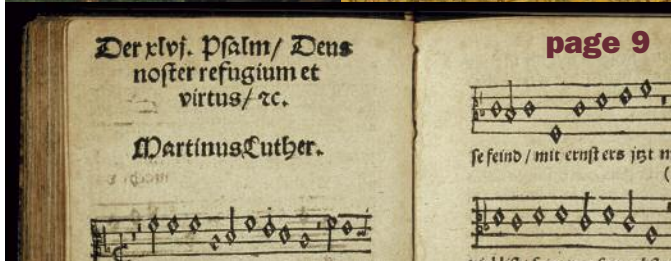 Der xlvj. Pſalm/ Deus
noſter refugium et
virtus/ ꝛc.
Martinus Luther.
page 9
ſe feind / mit ernſt ers jtzt